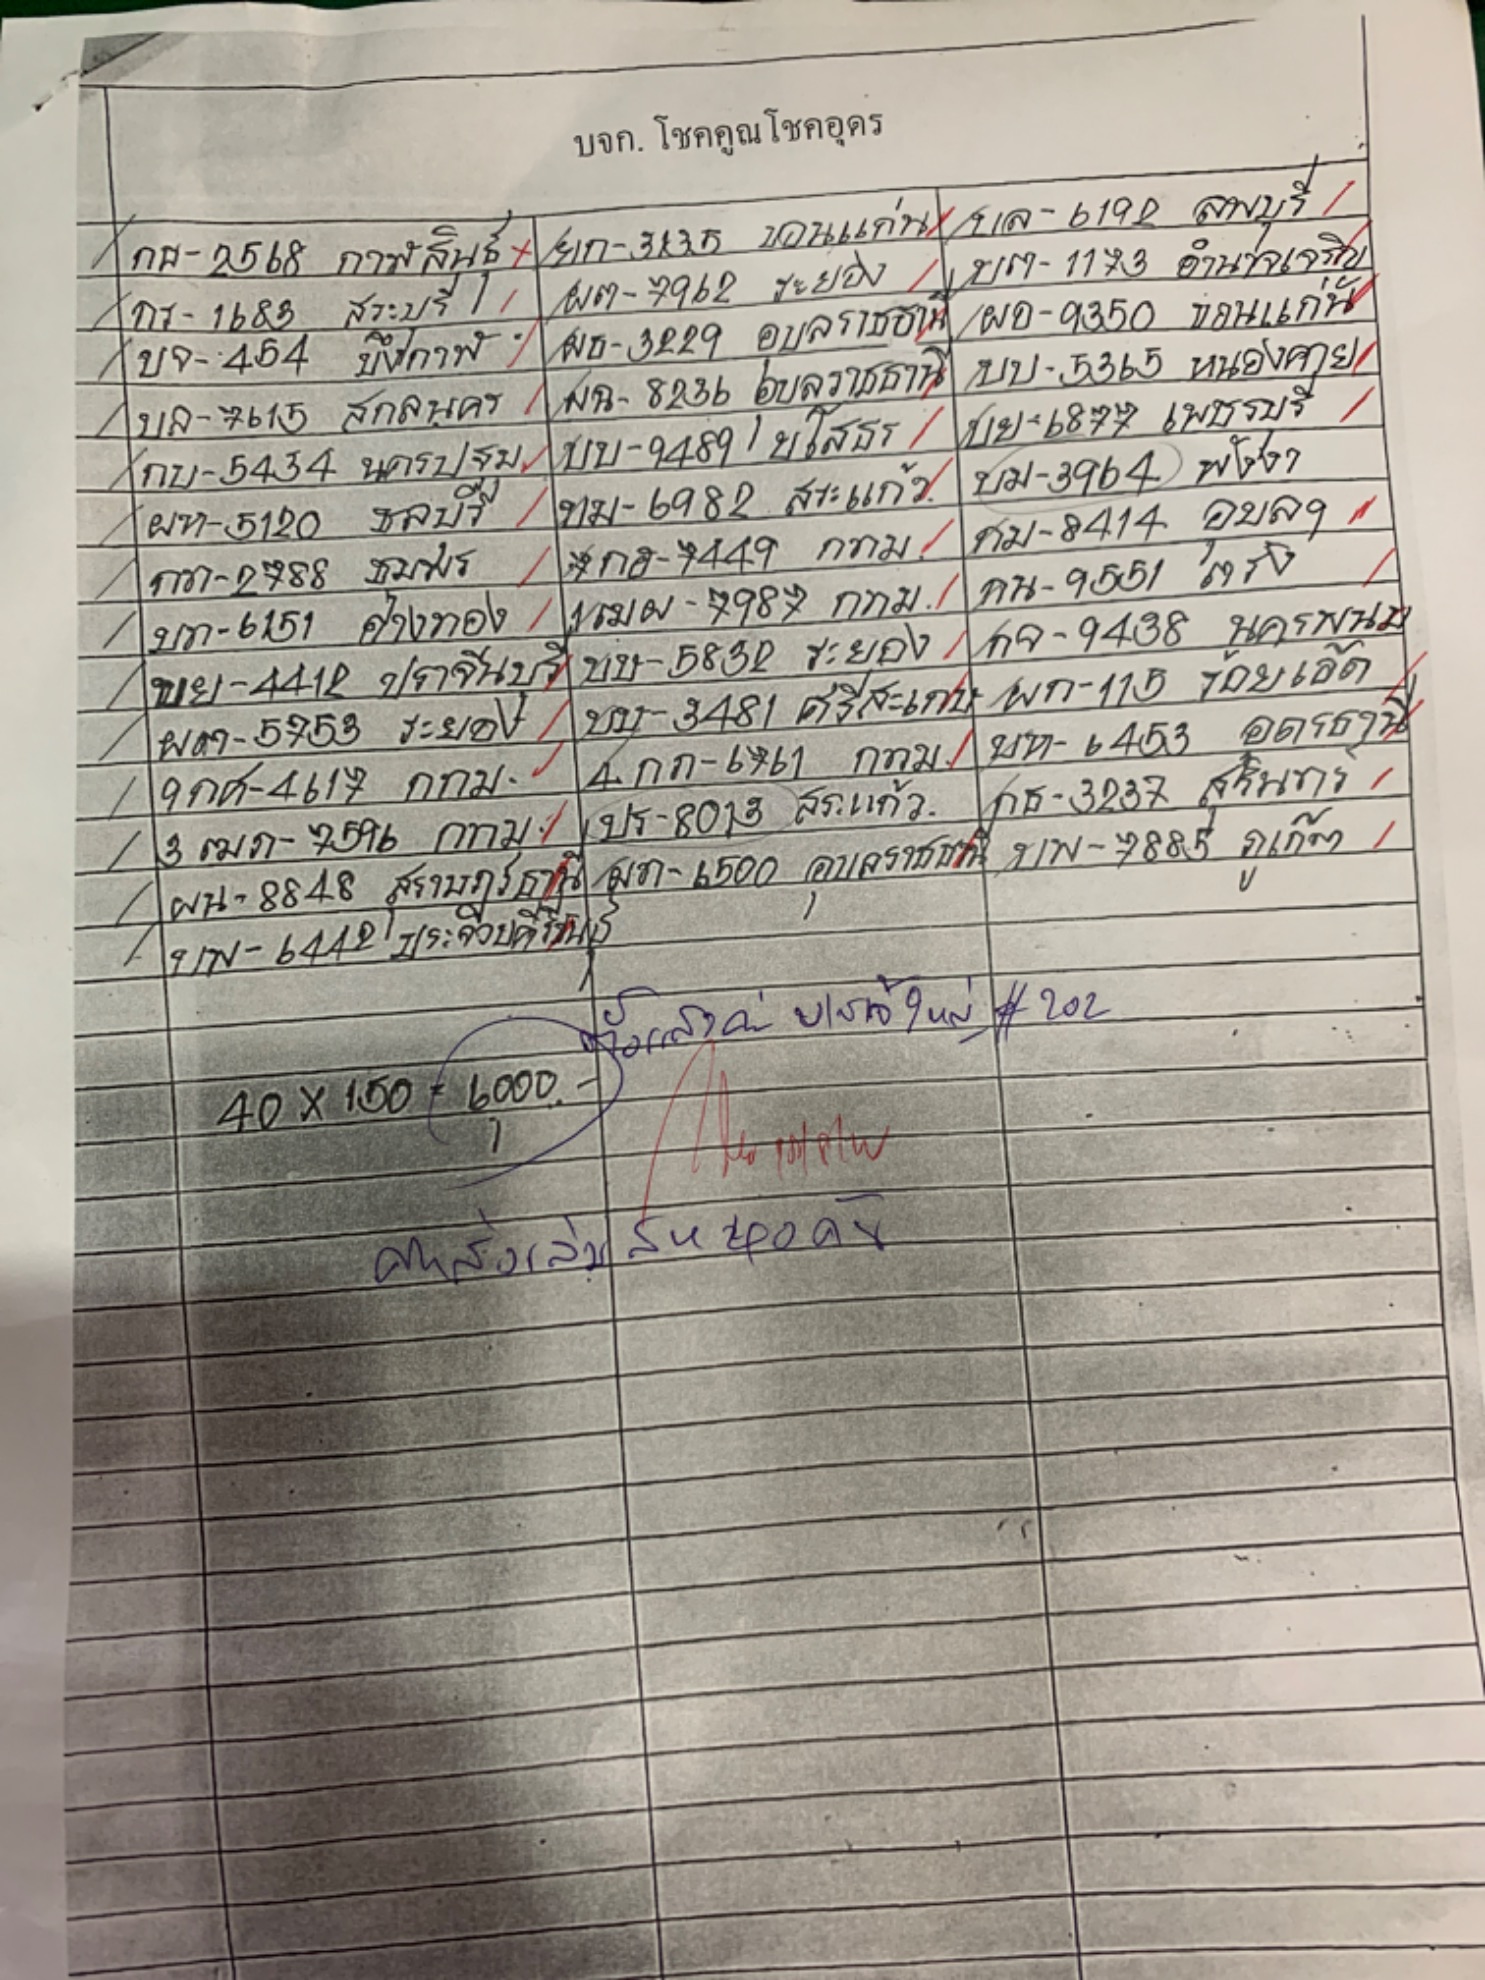 บจก. โชคคูณโชคอุดร
กธ-2568 กาฬสินธุ์
กร-1683 สระบุรี
บจ-454 บึงกาฬ
บล-7615 สกลนคร
กบ-5434 นครปฐม
ผท-5120 ชลบุรี
กท-2788 ชุมพร
บท-6151 อ่างทอง
ขย-4412 ปราจีนบุรี
ผต-5753 ระยอง
9กศ-4617 กทม.
3ฒภ-7596 กทม.
ผน-8848 สุราษฎร์ธานี
บพ-6442 ประจวบคีรีขันธ์
ยก-3235 ขอนแก่น
ผต-7962 ระยอง
ผธ-3229 อุบลราชธานี
ผฉ-8236 อุบลราชธานี
บบ-9489 ยโสธร
บม-6982 สระแก้ว
7กอ-7449 กทม.
1ฒผ-7987 กทม.
บษ-5832 ระยอง
บบ-3481 ศรีสะเกษ
4กภ-6761 กทม.
ปร-8013 สระแก้ว.
ผท-6500 อุบลราชธานี
บล-6192 ลพบุรี
บต-1173 อำนาจเจริญ
ผอ-9350 ขอนแก่น
บบ-5365 หนองคาย
บย-6877 เพชรบุรี
บม-3964 พังงา
กม-8414 อุบลฯ
กน-9551 ตรัง
กจ-9438 นครพนม
ผก-115 ร้อยเอ็ด
บท-6453 อุดรธานี
กธ-3237 สุรินทร์
บพ-7885 ภูเก็ต
#202
40 x 150 = 6000.-